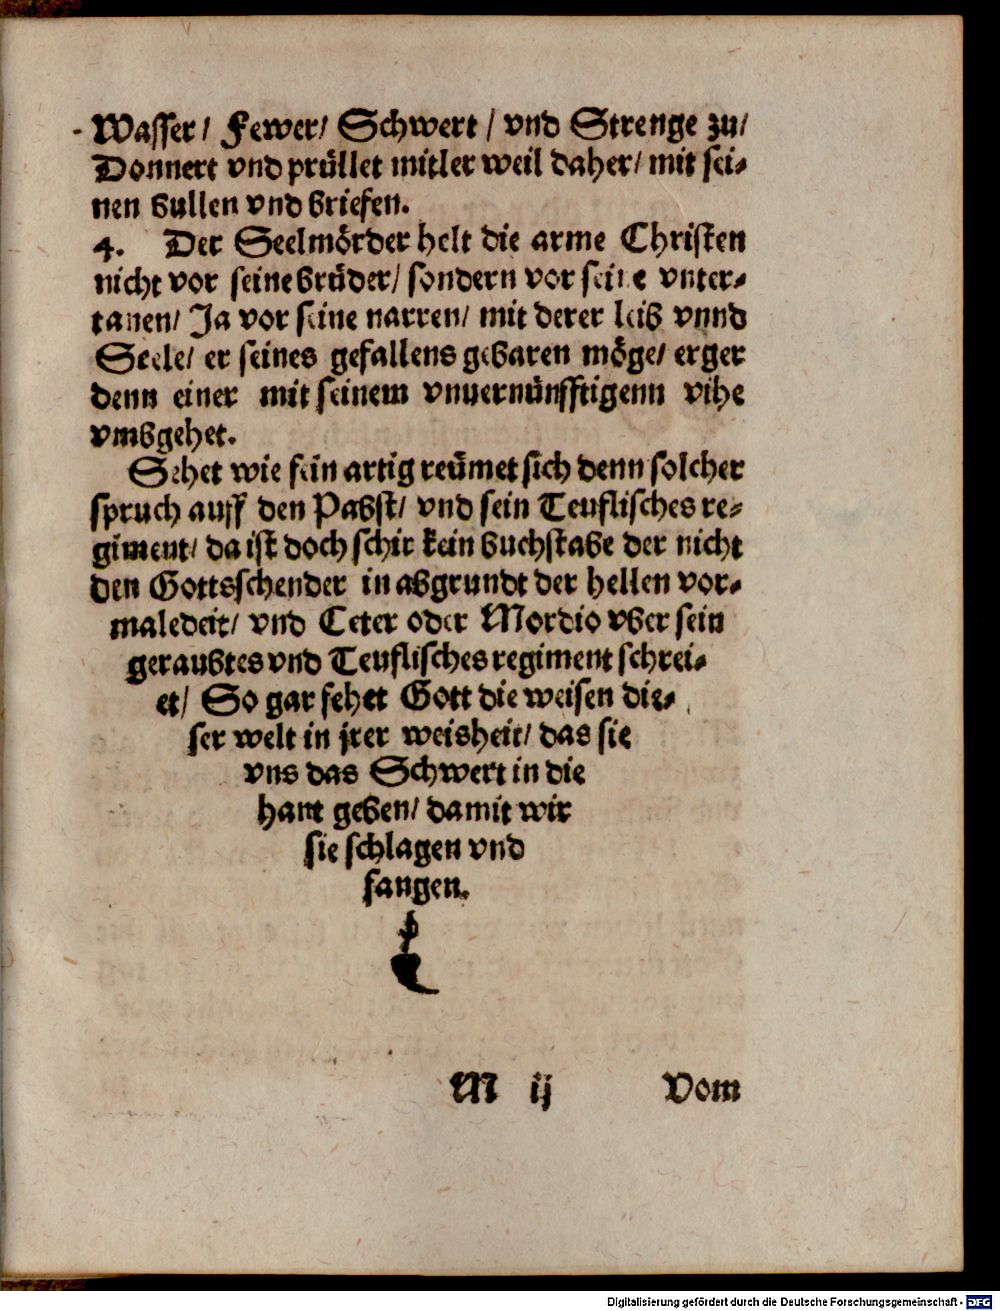 Wasser/ Fewer/ Schwert / vnd Strenge zu/
Donnert vnd prüllet mitler weil daher/ mit sei-
nen bullen vnd briefen.
4. Der Seelmörder helt die arme Christen
nicht vor seine brüder/ sondern vor seine vnter-
tanen/ Ja vor seine narren/ mit derer leib vnnd
Seele/ er seines gefallens gebaren möge/ erger
denn einer mit seinem vnuernünfftigenn vihe
vmbgehet.
Sehet wie fein artig reümet sich denn solcher
spruch auff den Pabst/ vnd sein Teuflisches re-
giment/ da ist doch schir kein buchstabe der nicht
den Gottsschender in abgrundt der hellen vor-
maledeit/ vnd Ceter oder Mordio vber sein
geraubtes vnd Teuflisches regiment schrei-
et/ So gar fehet Gott die weisen die-
ser welt in jrer weisheit/ das sie
vns das Schwert in die
hant geben/ damit wir
sie schlagen vnd
fangen.
M ij Vom
Digitalisierung gefördert durch die Deutsche Forschungsgemeinschaft - DFG